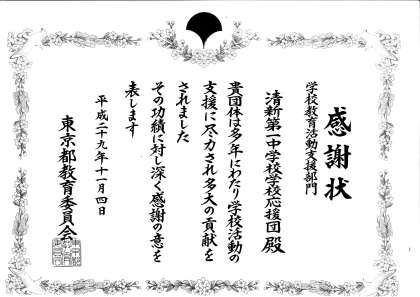 感謝状
学校教育活動支援部門
清新第一中学校学校応援団殿
貴団体は多年にわたり学校活動の
支援に尽力され多大の貢献を
されました
その功績に対し深く感謝の意を
表します
平成二十九年十一月四日
東京都教育委員会